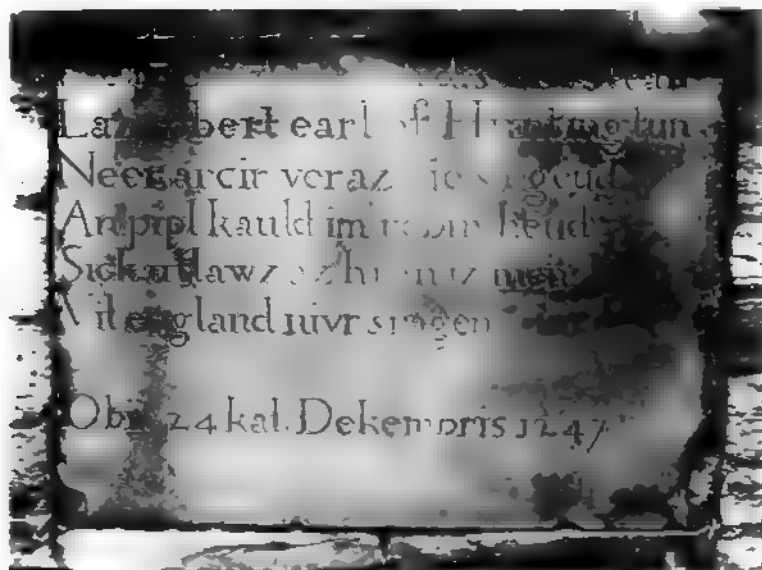 Laz robert earl of Huntingtun
Neer arcir ver az hie sa geud
An pipl kauld im robin heud
Sick utlawz az hi an iz men
Vil england nivr si agen
Obiit 24 kal. Dekembris 1247